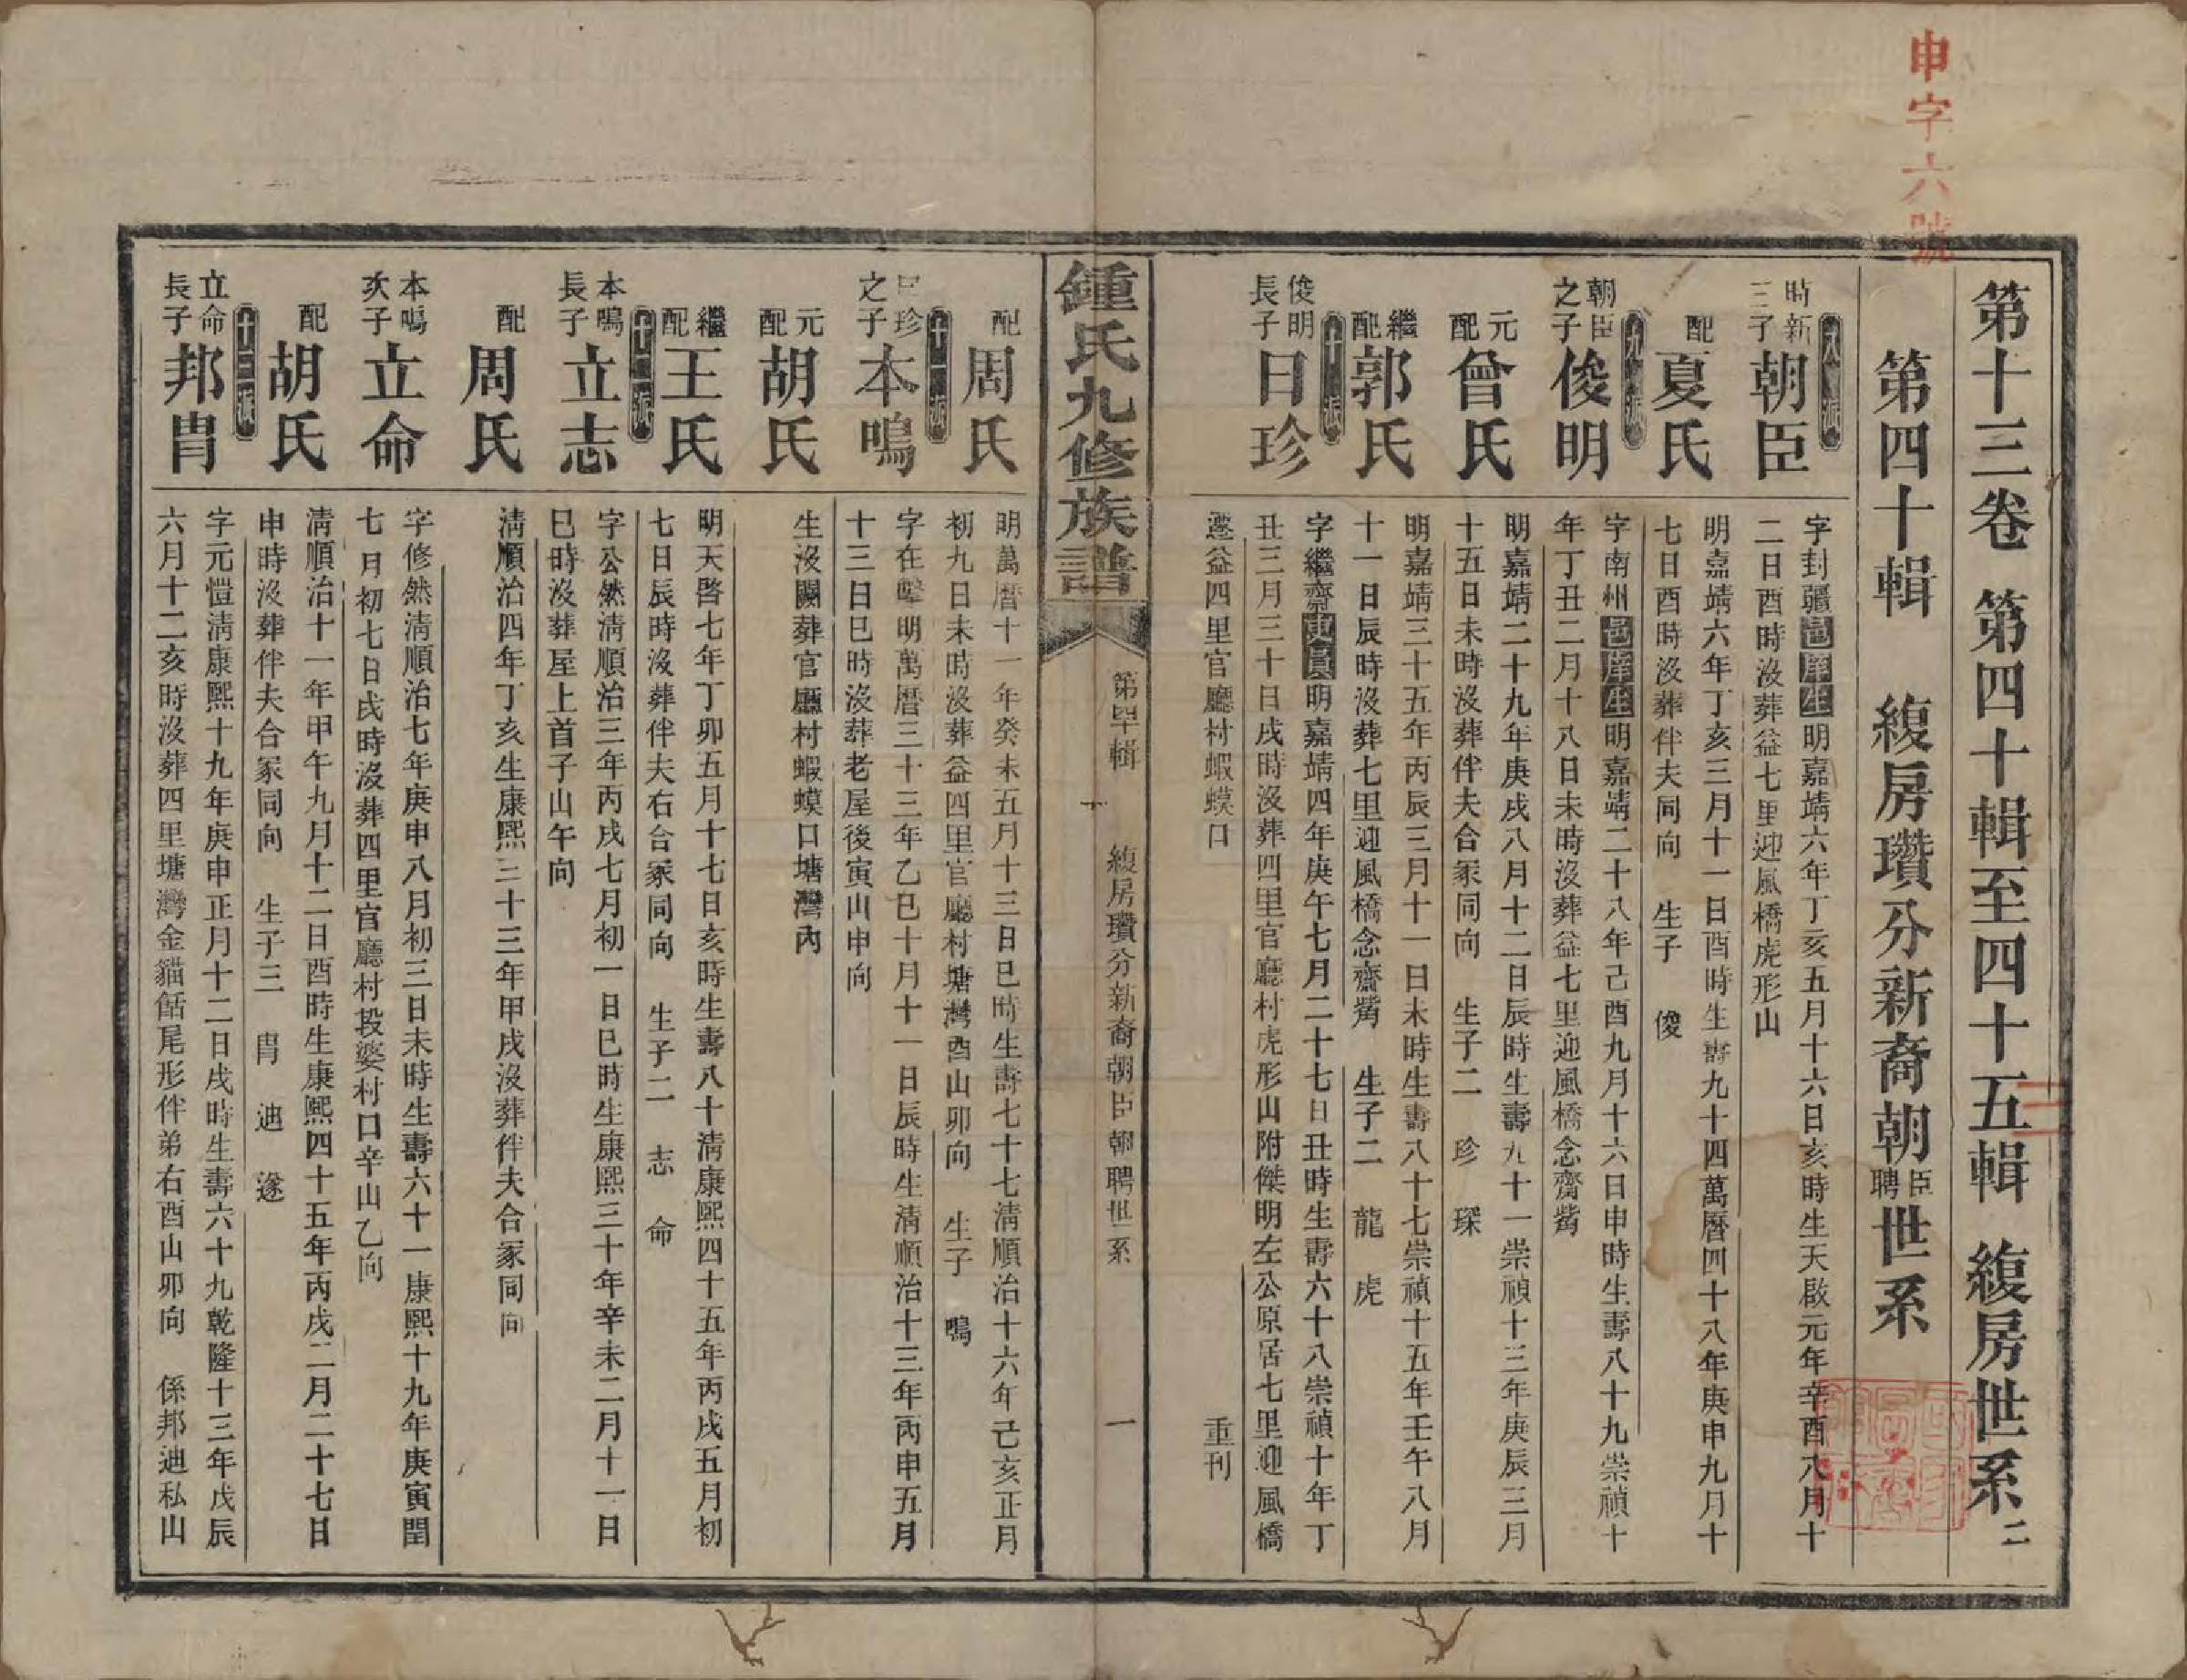 申字六號
第十三卷 第四十輯至四十五輯 緮房世系二
第四十輯 緮房瓚分新裔朝臣聘世系
八派
時新三子 朝臣
字封疆邑庠生明嘉靖六年丁亥五月十六日亥時生天啟元年辛酉八月十
二日酉時沒葬益七里迎風橋虎形山
配 夏氏
明嘉靖六年丁亥三月十一日酉時生壽九十四萬曆四十八年庚申九月十
七日酉時沒葬伴夫同向 生子 俊
九派
朝臣之子 俊明
字南州邑庠生明嘉靖二十八年己酉九月十六日申時生壽八十九崇禎十
年丁丑二月十八日未時沒葬益七里迎風橋念齋嘴
元配 曾氏
明嘉靖二十九年庚戌八月十二日辰時生壽九十一崇禎十三年庚辰三月
十五日未時沒葬伴夫合冢同向 生子二 珍 琛
繼配 郭氏
明嘉靖三十五年丙辰三月十一日未時生壽八十七崇禎十五年壬午八月
十一日辰時沒葬七里迎風橋念齋嘴 生子二 龍 虎
十派
俊明長子 日珍
字繼齋 明嘉靖四年庚午七月二十七日丑時生壽六十八崇禎十年丁
丑三月三十日戌時沒葬四里官廳村虎形山附傑明左公原居七里迎風橋
遷益四里官廳村蝦蟆口
重刊
鍾氏九修族譜
第四十輯
緮房瓚分新裔朝臣聘世系
一
配 周氏
明萬曆十一年癸未五月十三日巳時生壽七十七清順治十六年己亥正月
初九日未時沒葬益四里官廳村塘灣酉山卯向 生子 鳴
十一派
日珍之子 本鳴
字在 明萬曆三十三年乙巳十月十一日辰時生清順治十三年丙申五月
十三日巳時沒葬老屋後寅山申向
元配 胡氏
生沒闕葬官廳村蝦蟆口塘灣內
繼配 王氏
明天啓七年丁卯五月十七日亥時生壽八十清康熙四十五年丙戌五月初
七日辰時沒葬伴夫右合冢同向 生子二 志 命
十二派
本鳴長子 立志
字公然清順治三年丙戌七月初一日巳時生康熙三十年辛未二月十一日
巳時沒葬屋上首子山午向
配 周氏
清順治四年丁亥生康熙三十三年甲戌沒葬伴夫合冢同向
本鳴次子 立命
字修然清順治七年庚申八月初三日未時生壽六十一康熙十九年庚寅閏
七月初七日戌時沒葬四里官廳村投婆村口辛山乙向
配 胡氏
清順治十一年甲午九月十二日酉時生康熙四十五年丙戌二月二十七日
申時沒葬伴夫合冢同向 生子三 胄 迪 遂
十三派
立命長子 邦胄
字元愷清康熙十九年庚申正月十二日戌時生壽六十九乾隆十三年戊辰
六月十二亥時沒葬四里塘灣金貓餂尾形伴弟右酉山卯向 係邦迪私山